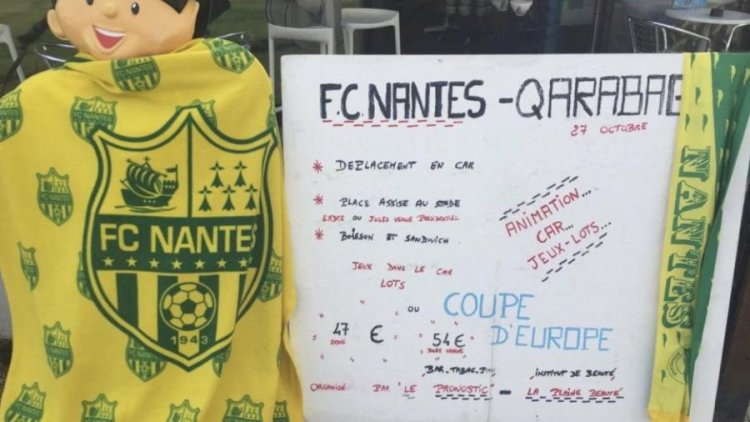 FC NANTES
1943
F.C. NANTES - QARABAG
27 OCTOBRE
* DEPLACEMENT EN CAR
* PLACE ASSISE AU STADE
ERDRE OU JULES VERNE PRESIDENTIEL
* BOISSON ET SANDWICH
ANIMATION...
CAR...
JEUX-LOTS...
JEUX DANS LE CAR
LOTS
COUPE
D'EUROPE
47 € OU 54 €
JULES VERNE
BAR-TABAC-P
INSTITUT DE BEAUTÉ
ORGANISÉ PAR "LE PRONOSTIC" - LA PLAINE BEAUTÉ
NANTES